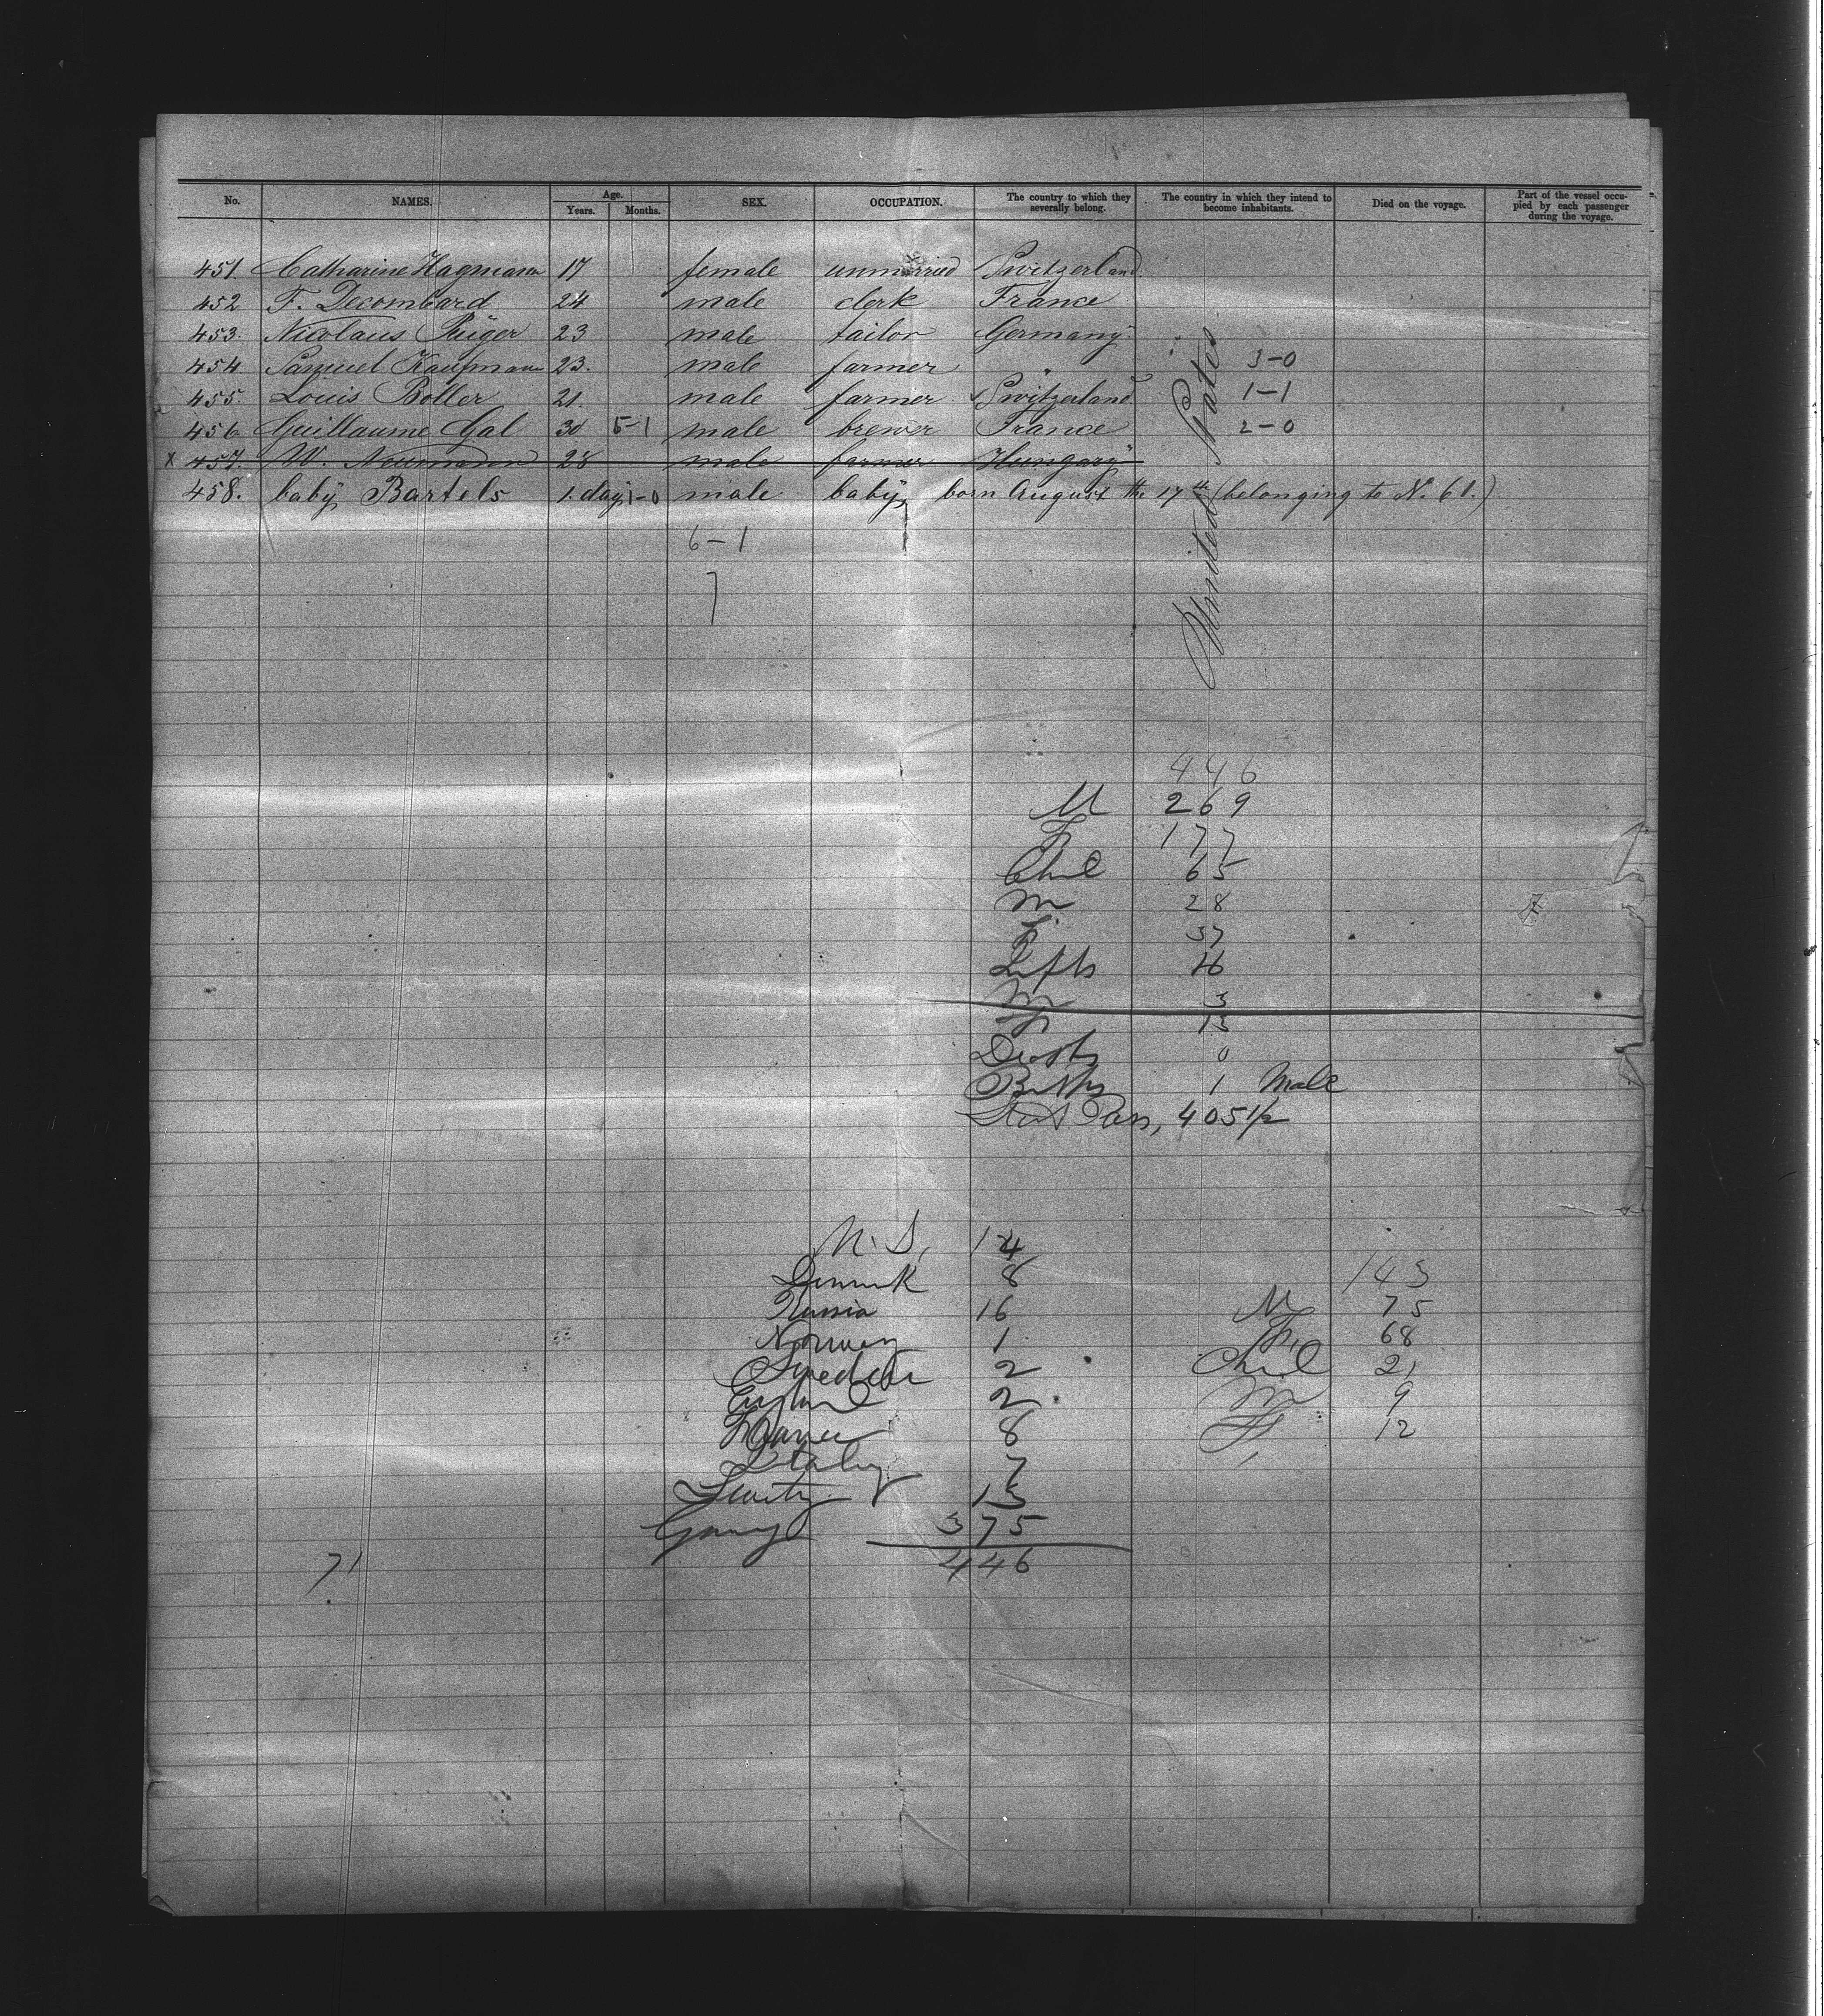 No. NAMES. Age. Years. Months. SEX. OCCUPATION. The country to which they severally belong. The country in which they intend to become inhabitants. Died on the voyage. Part of the vessel occupied by each passenger during the voyage.
451. Catharine Hagmann 17 female unmarried Switzerland
452 F. Decombard 24 male clerk France
453. Nicolaus Rüger 23 male tailor Germany
454 Samuel Kaufmann 23. male farmer " 3-0
455. Louis Boller 21. male farmer Switzerland 1-1
456 Guillaume Gal 30 5-1 male brewer France 2-0
x 457. W. Neumann 28 male farmer Hungary
458. baby Bartels 1. day 1-0 male baby, born August the 17th (belonging to N. 61.)
United States
6-1
7
446
M 269
F 177
Chil 65
M 28
F. 37
Infts 16
M 3
F 13
Deaths 0
Births 1 Male
Pass, 405 1/2
U.S. 14
Denmark 8 143
Russia 16 M 75
Norway 1 F. 68
Sweden 2 Chil 21
England 2 M 9
France 8 F. 12
Italy 7
Switz 13
Gmny 375
446
71